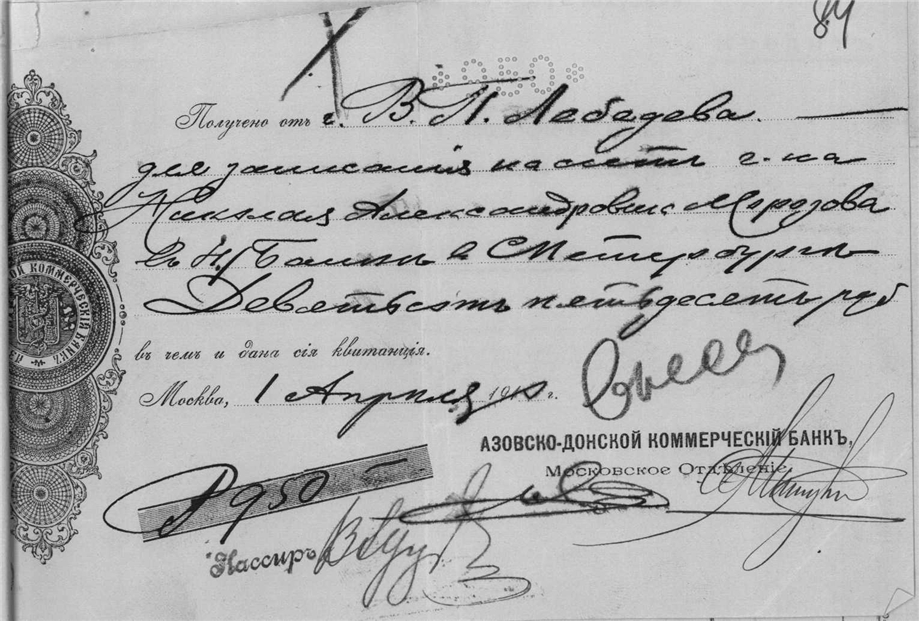 84
*950*
Получено отъ г. В. П. Лебедева.
для записанія на счетъ г-на
Николая Александровича Морозова
въ Н/Банкъ въ С Петербургъ
Девятьсотъ пятьдесятъ руб
въ чемъ и дана сія квитанція.
Москва, 1 Апрѣля 1910 г.
АЗОВСКО-ДОНСКОЙ КОММЕРЧЕСКІЙ БАНКЪ,
Московское Отдѣленіе
КОММЕРЧЕСКІЙ БАНКЪ
Р 950 —
Кассиръ